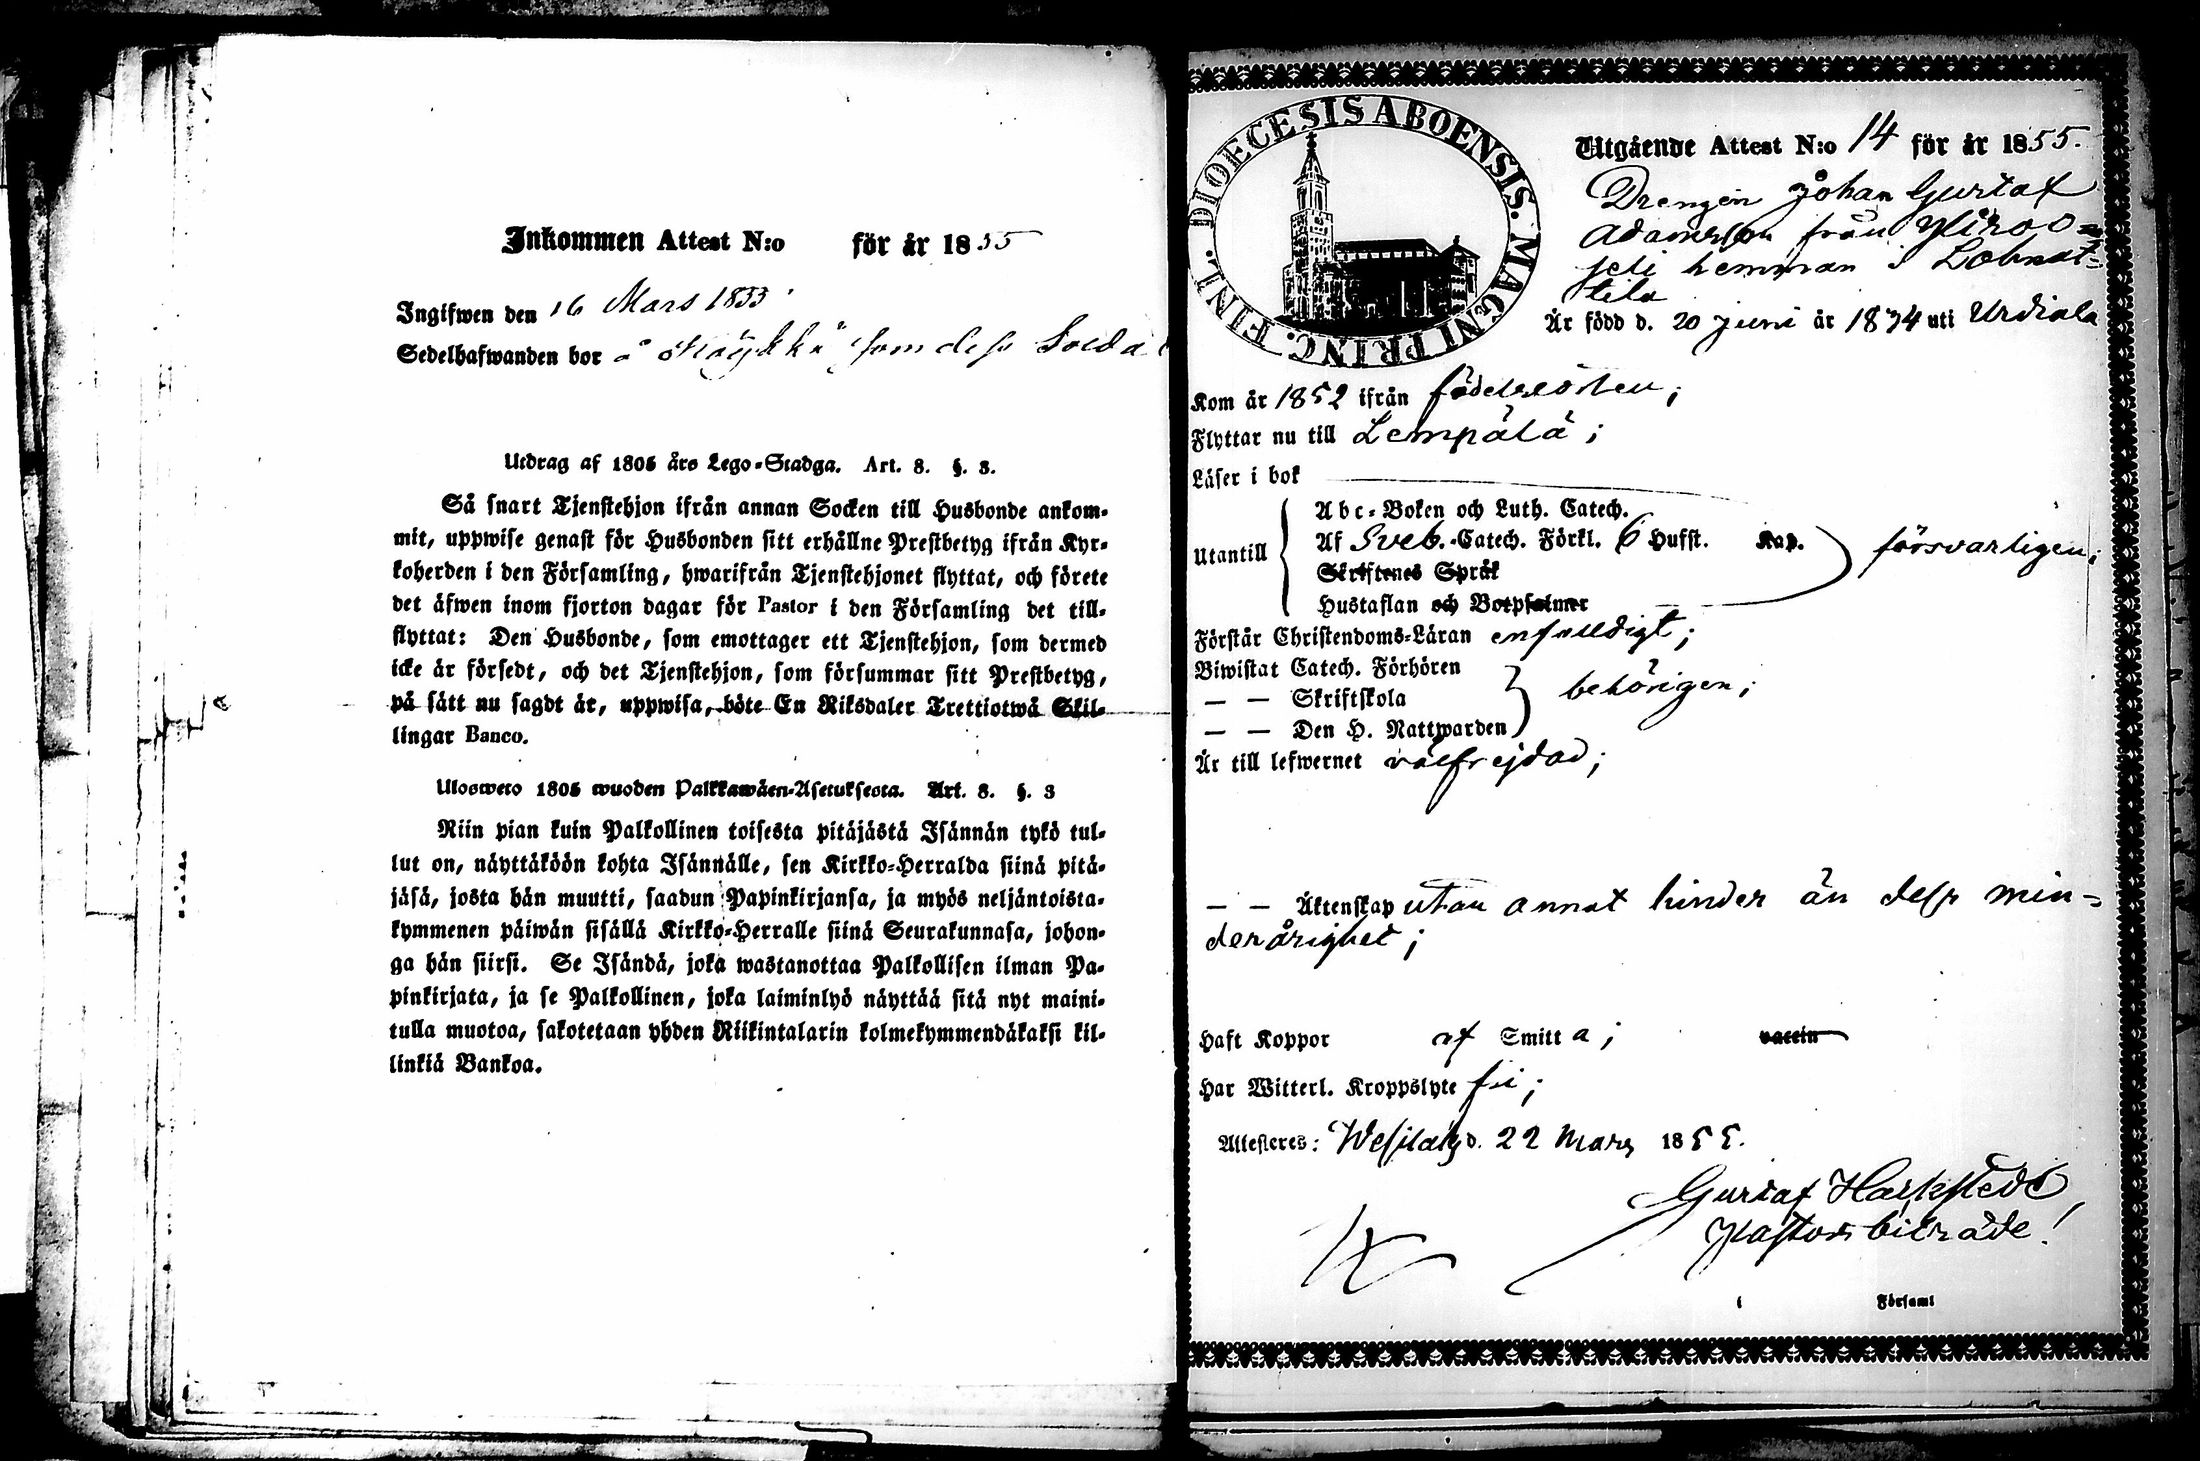 Inkommen Attest N:o för år 1855
Ingifwen den 16 Mars 1855
Sedelhafwanden bor å som dess
Utdrag af 1805 års Lego-Stadga. Art. 8. §. 3.
Så snart Tjenstehjon ifrån annan Socken till Husbonde ankom-
mit, uppwise genast för Husbonden sitt erhållne Prestbetyg ifrån Kyr-
koherden i den Församling, hwarifrån Tjenstehjonet flyttat, och förete
det äfwen inom fjorton dagar för Pastor i den Församling det till-
flyttat: Den Husbonde, som emottager ett Tjenstehjon, som dermed
icke är försedt, och det Tjenstehjon, som försummar sitt Prestbetyg,
på sätt nu sagdt är, uppwisa, böte En Riksdaler Trettiotwå Skil-
lingar Banco.
Ulosweto 1805 wuoden Palkkawäen-Asetuksesta. Art. 8. §. 3
Niin pian kuin Palkollinen toisesta pitäjästä Isännän tykö tul-
lut on, näyttäköön kohta Isännälle, sen Kirkko-Herralda siinä pitä-
jäsä, josta hän muutti, saadun Papinkirjansa, ja myös neljäntoista-
kymmenen päiwän sisällä Kirkko-Herralle siinä Seurakunnasa, johon-
ga hän siirsi. Se Isändä, joka wastanottaa Palkollisen ilman Pa-
pinkirjata, ja se Palkollinen, joka laiminlyö näyttää sitä nyt maini-
tulla muotoa, sakotetaan yhden Riikintalarin kolmekymmendäkaksi kil-
linkiä Bankoa.
DIOECESIS ABOENSIS. MAGNI PRINC. FINL.
Utgående Attest N:o 14 för år 1855.
Drengen Johan Gustaf
Adamsson från
hemman i
Är född d. 20 Juni år 1834 uti Urdiala
Kom år 1852 ifrån födelseorten;
Flyttar nu till Lempälä;
Läser i bok
Abc-Boken och Luth. Catech.
Utantill Af Sveb.-Catech. Förkl. 6 Hufst. Kap. försvarligen;
Skriftenes Språk
Hustaflan och Botpsalmer
Förstår Christendoms-Läran enfalldigt;
Biwistat Catech. Förhören
— — Skriftskola behörigen;
— — Den H. Nattwarden
Är till lefwernet välfrejdad;
— — Äktenskap utan annat hinder än dess min-
derårighet;
Haft Koppor af Smitta; vaccin
Har Witterl. Kroppslyte fri;
Attesteres: Wesilax d. 22 Mars 1855.
Gustaf
Pastors biträde!
i Församl